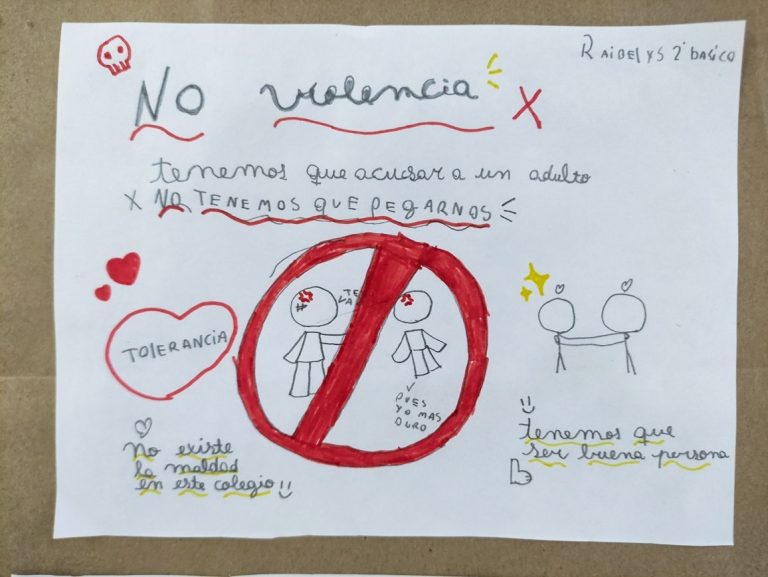 Raibelys 2° basico
No violencia
tenemos que acusar a un adulto
X NO TENEMOS QUE PEGARNOS
TOlERANCiA
TE
PUES
YO MAS
DURO
No existe
la maldad
en este colegio
tenemos que
ser buena persona